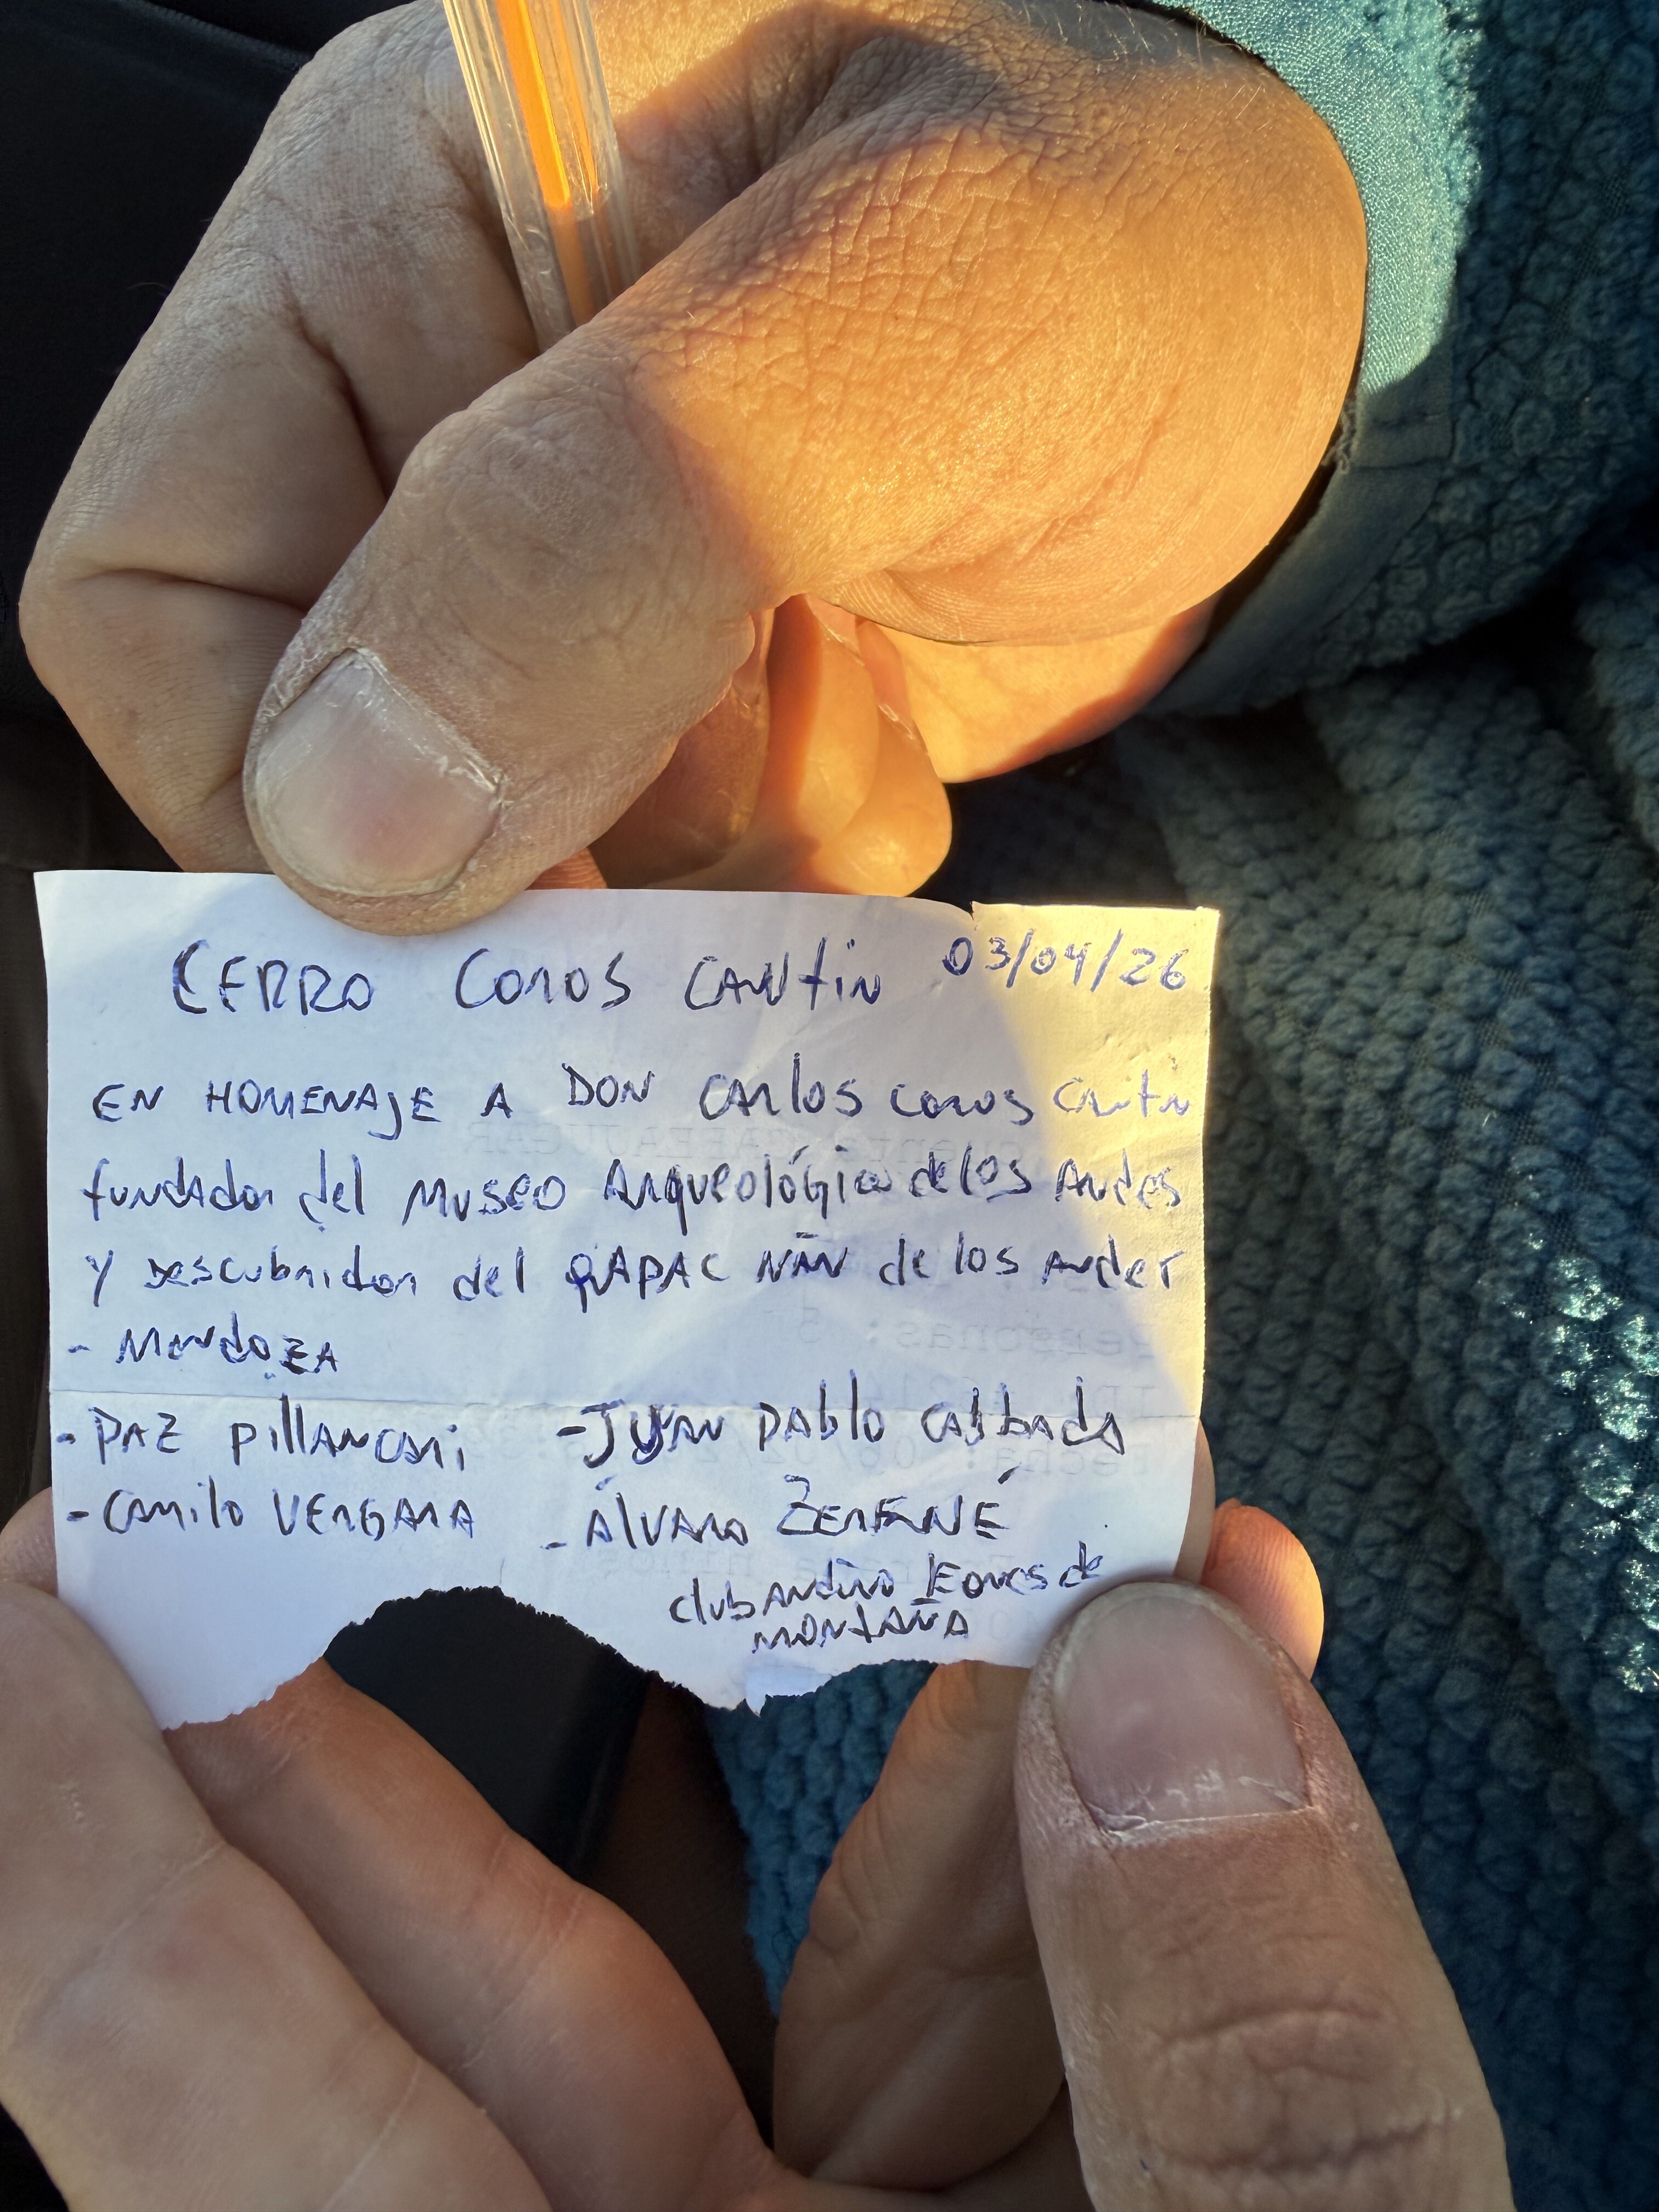 CERRO Coros CANtin 03/04/26
EN HOMENAJE A DON CARlos coros Cantin
fundador del Museo Arqueológico de los Andes
y Descubridor del QAPAC ÑAN de los Andes
- MendozA
- PAZ pillANCARi - JUAN pablo
- CAMilo VERGARA - Álvaro ZERENÉ
club Andino Leones de
MONTAÑA